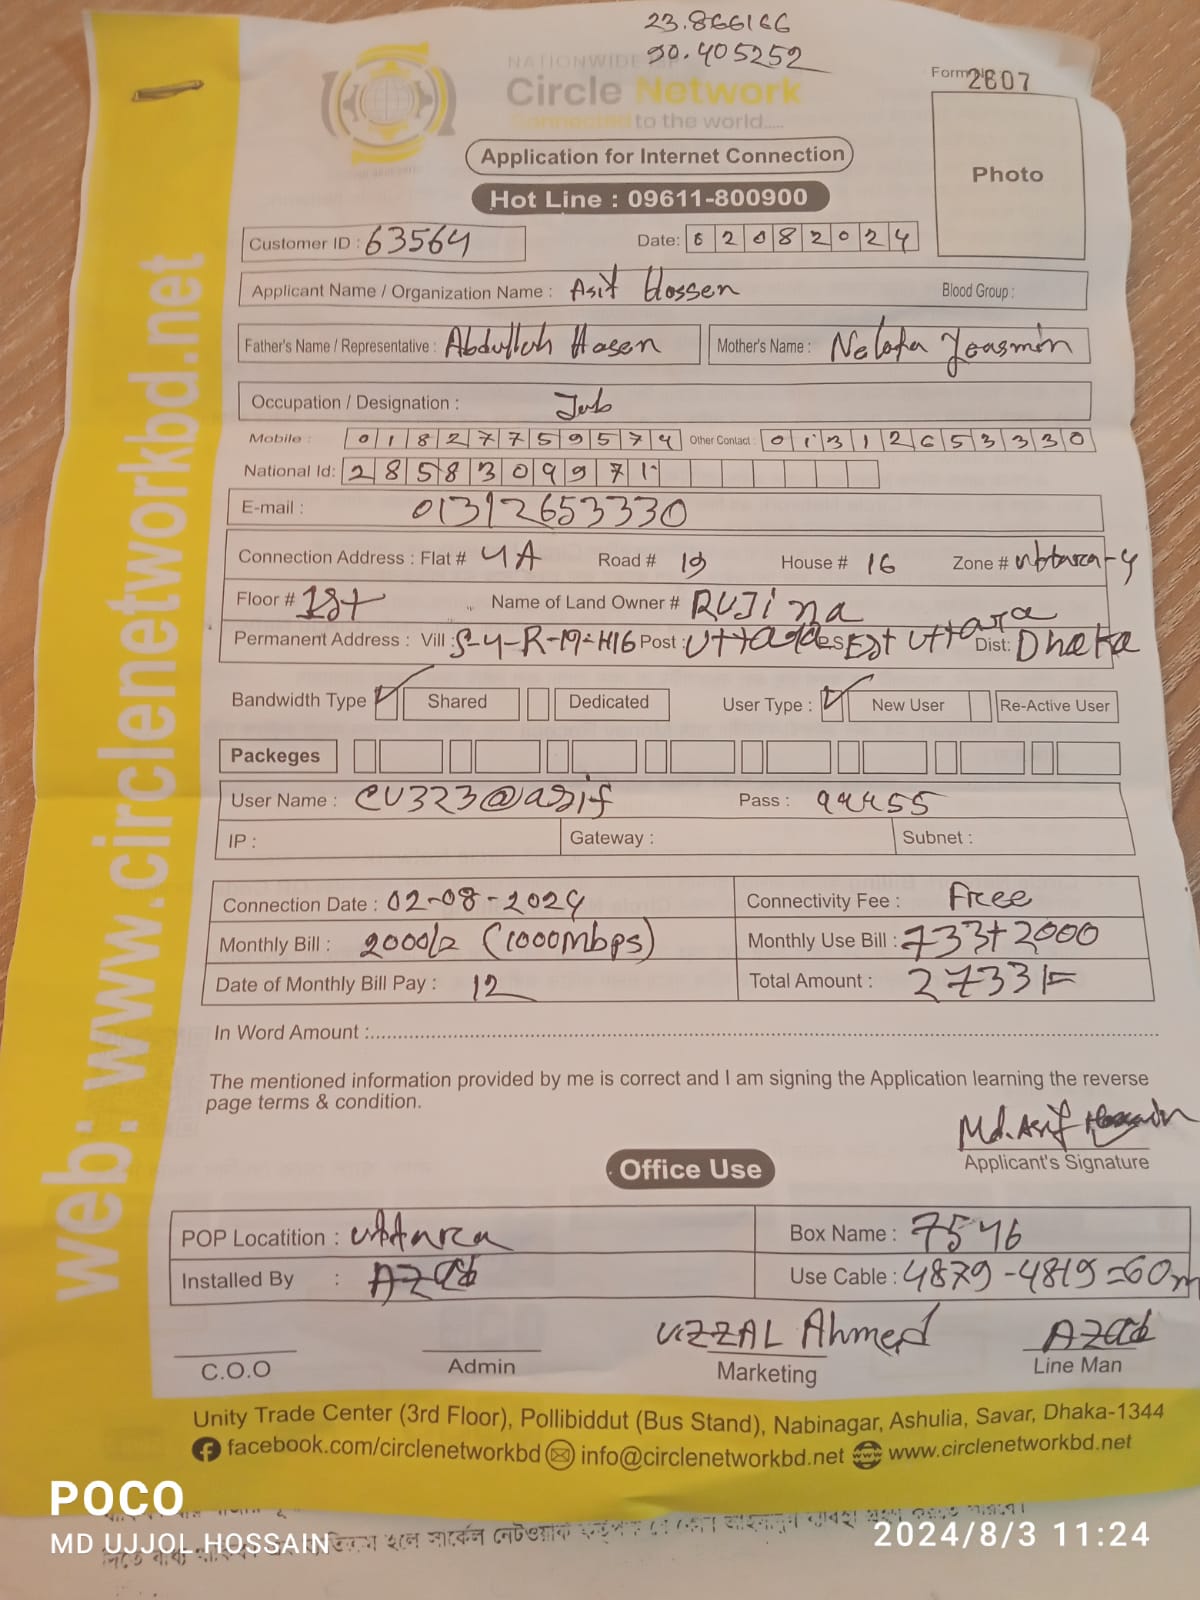 23.866166
90.405252
NATIONWIDE ISP
Circle Network
Connected to the world.....
Form No 2607
Application for Internet Connection
Photo
Hot Line : 09611-800900
Customer ID : 63564 Date: 02082024
Applicant Name / Organization Name : Asif Hossen Blood Group :
Father's Name / Representative : Abdullah Hosen Mother's Name : Nelofa Yeasmin
Occupation / Designation : Job
Mobile : 01827759574 Other Contact : 01312653330
National Id: 2858309971
E-mail : 01312653330
Connection Address : Flat # 4A Road # 19 House # 16 Zone # uttara-4
Floor # 1st Name of Land Owner # RUJina
Permanent Address : Vill : S-4-R-19-H16 Post : Uttara Est Uttara Dist: Dhaka
Bandwidth Type Shared Dedicated User Type : New User Re-Active User
Packeges
User Name : CU323@asif Pass : 99455
IP : Gateway : Subnet :
Connection Date : 02-08-2024 Connectivity Fee : Free
Monthly Bill : 2000/= (1000Mbps) Monthly Use Bill : 733+2000
Date of Monthly Bill Pay : 12 Total Amount : 2733/=
In Word Amount :
The mentioned information provided by me is correct and I am signing the Application learning the reverse
page terms & condition.
Md. Asif Hossain
Applicant's Signature
Office Use
POP Locatition : uttara Box Name : 7546
Installed By : AZad Use Cable : 4879-4819=60m
UZZAL Ahmed AZad
C.O.O Admin Marketing Line Man
Unity Trade Center (3rd Floor), Pollibiddut (Bus Stand), Nabinagar, Ashulia, Savar, Dhaka-1344
facebook.com/circlenetworkbd info@circlenetworkbd.net www.circlenetworkbd.net
web: www.circlenetworkbd.net
POCO
MD UJJOL HOSSAIN
হলে সার্কেল নেটওয়ার্ক
2024/8/3 11:24